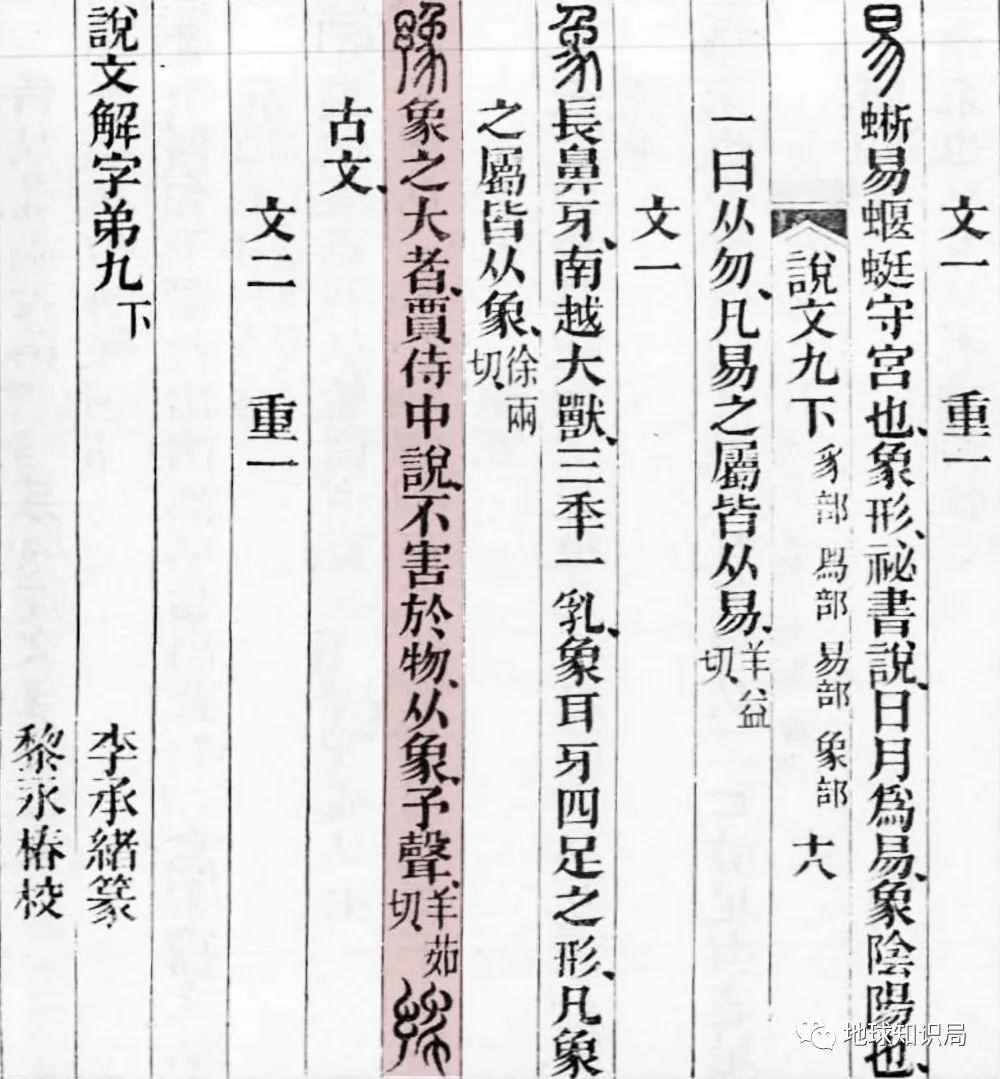 文一 重一
易 蜥易蝘蜓守宮也、象形、祕書說、日月爲易、象陰陽也、
說文九下 豸部 𤉡部 易部 象部 十八
一曰从勿、凡易之屬皆从易、羊益切、
文一
象 長鼻牙、南越大獸、三秊一乳、象耳牙四足之形、凡象
之屬皆从象、徐兩切、
豫 象之大者、賈侍中說、不害於物、从象、予聲、羊茹切、
古文、
文二 重一
說文解字弟九下 李承緒篆
黎永椿校
地球知识局